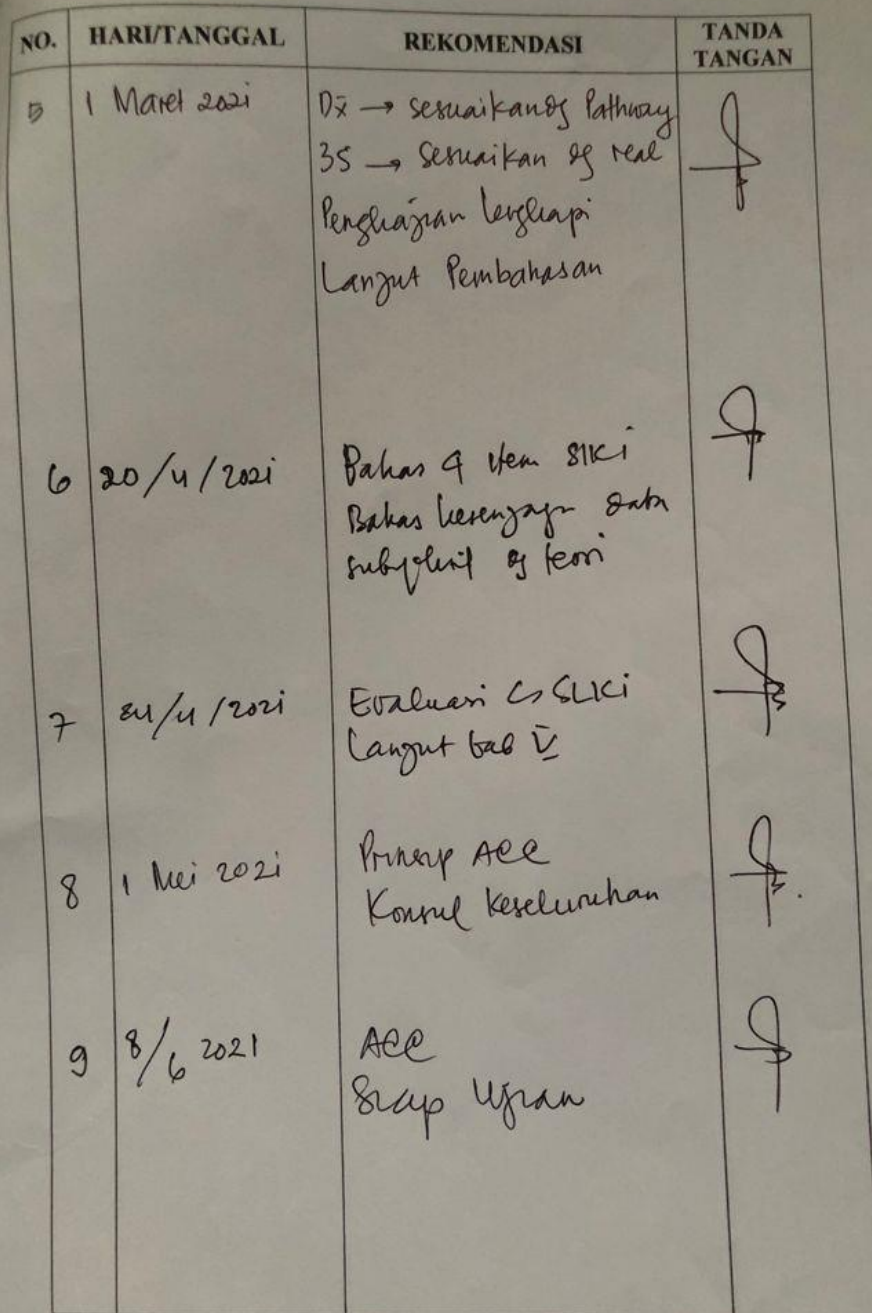 NO. HARI/TANGGAL REKOMENDASI TANDA TANGAN
5 1 Maret 2021 Dx̄ → sesuaikan dg Pathway
3S → Sesuaikan dg real
Pengkajian lengkapi
Lanjut Pembahasan
6 20/4/2021 Bahas 4 item SIKI
Bahas kesenjagn data
subjektif dg teori
7 24/4/2021 Evaluasi SLKI
Lanjut bab V
8 1 Mei 2021 Prinsip ACC
Konsul Keseluruhan
9 8/6 2021 ACC
Siap Ujian